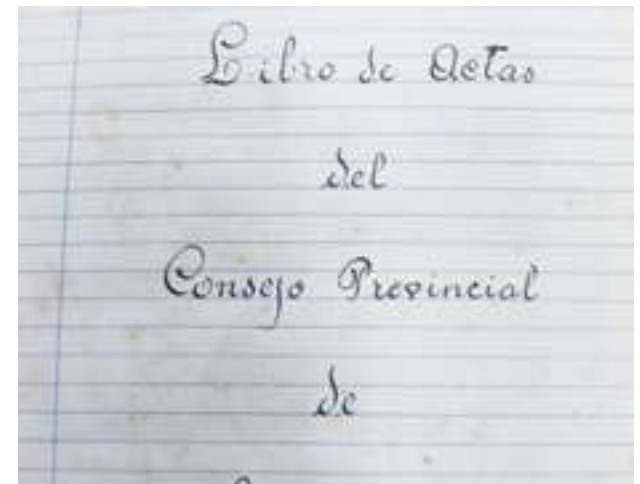 Libro de Actas
del
Consejo Provincial
de